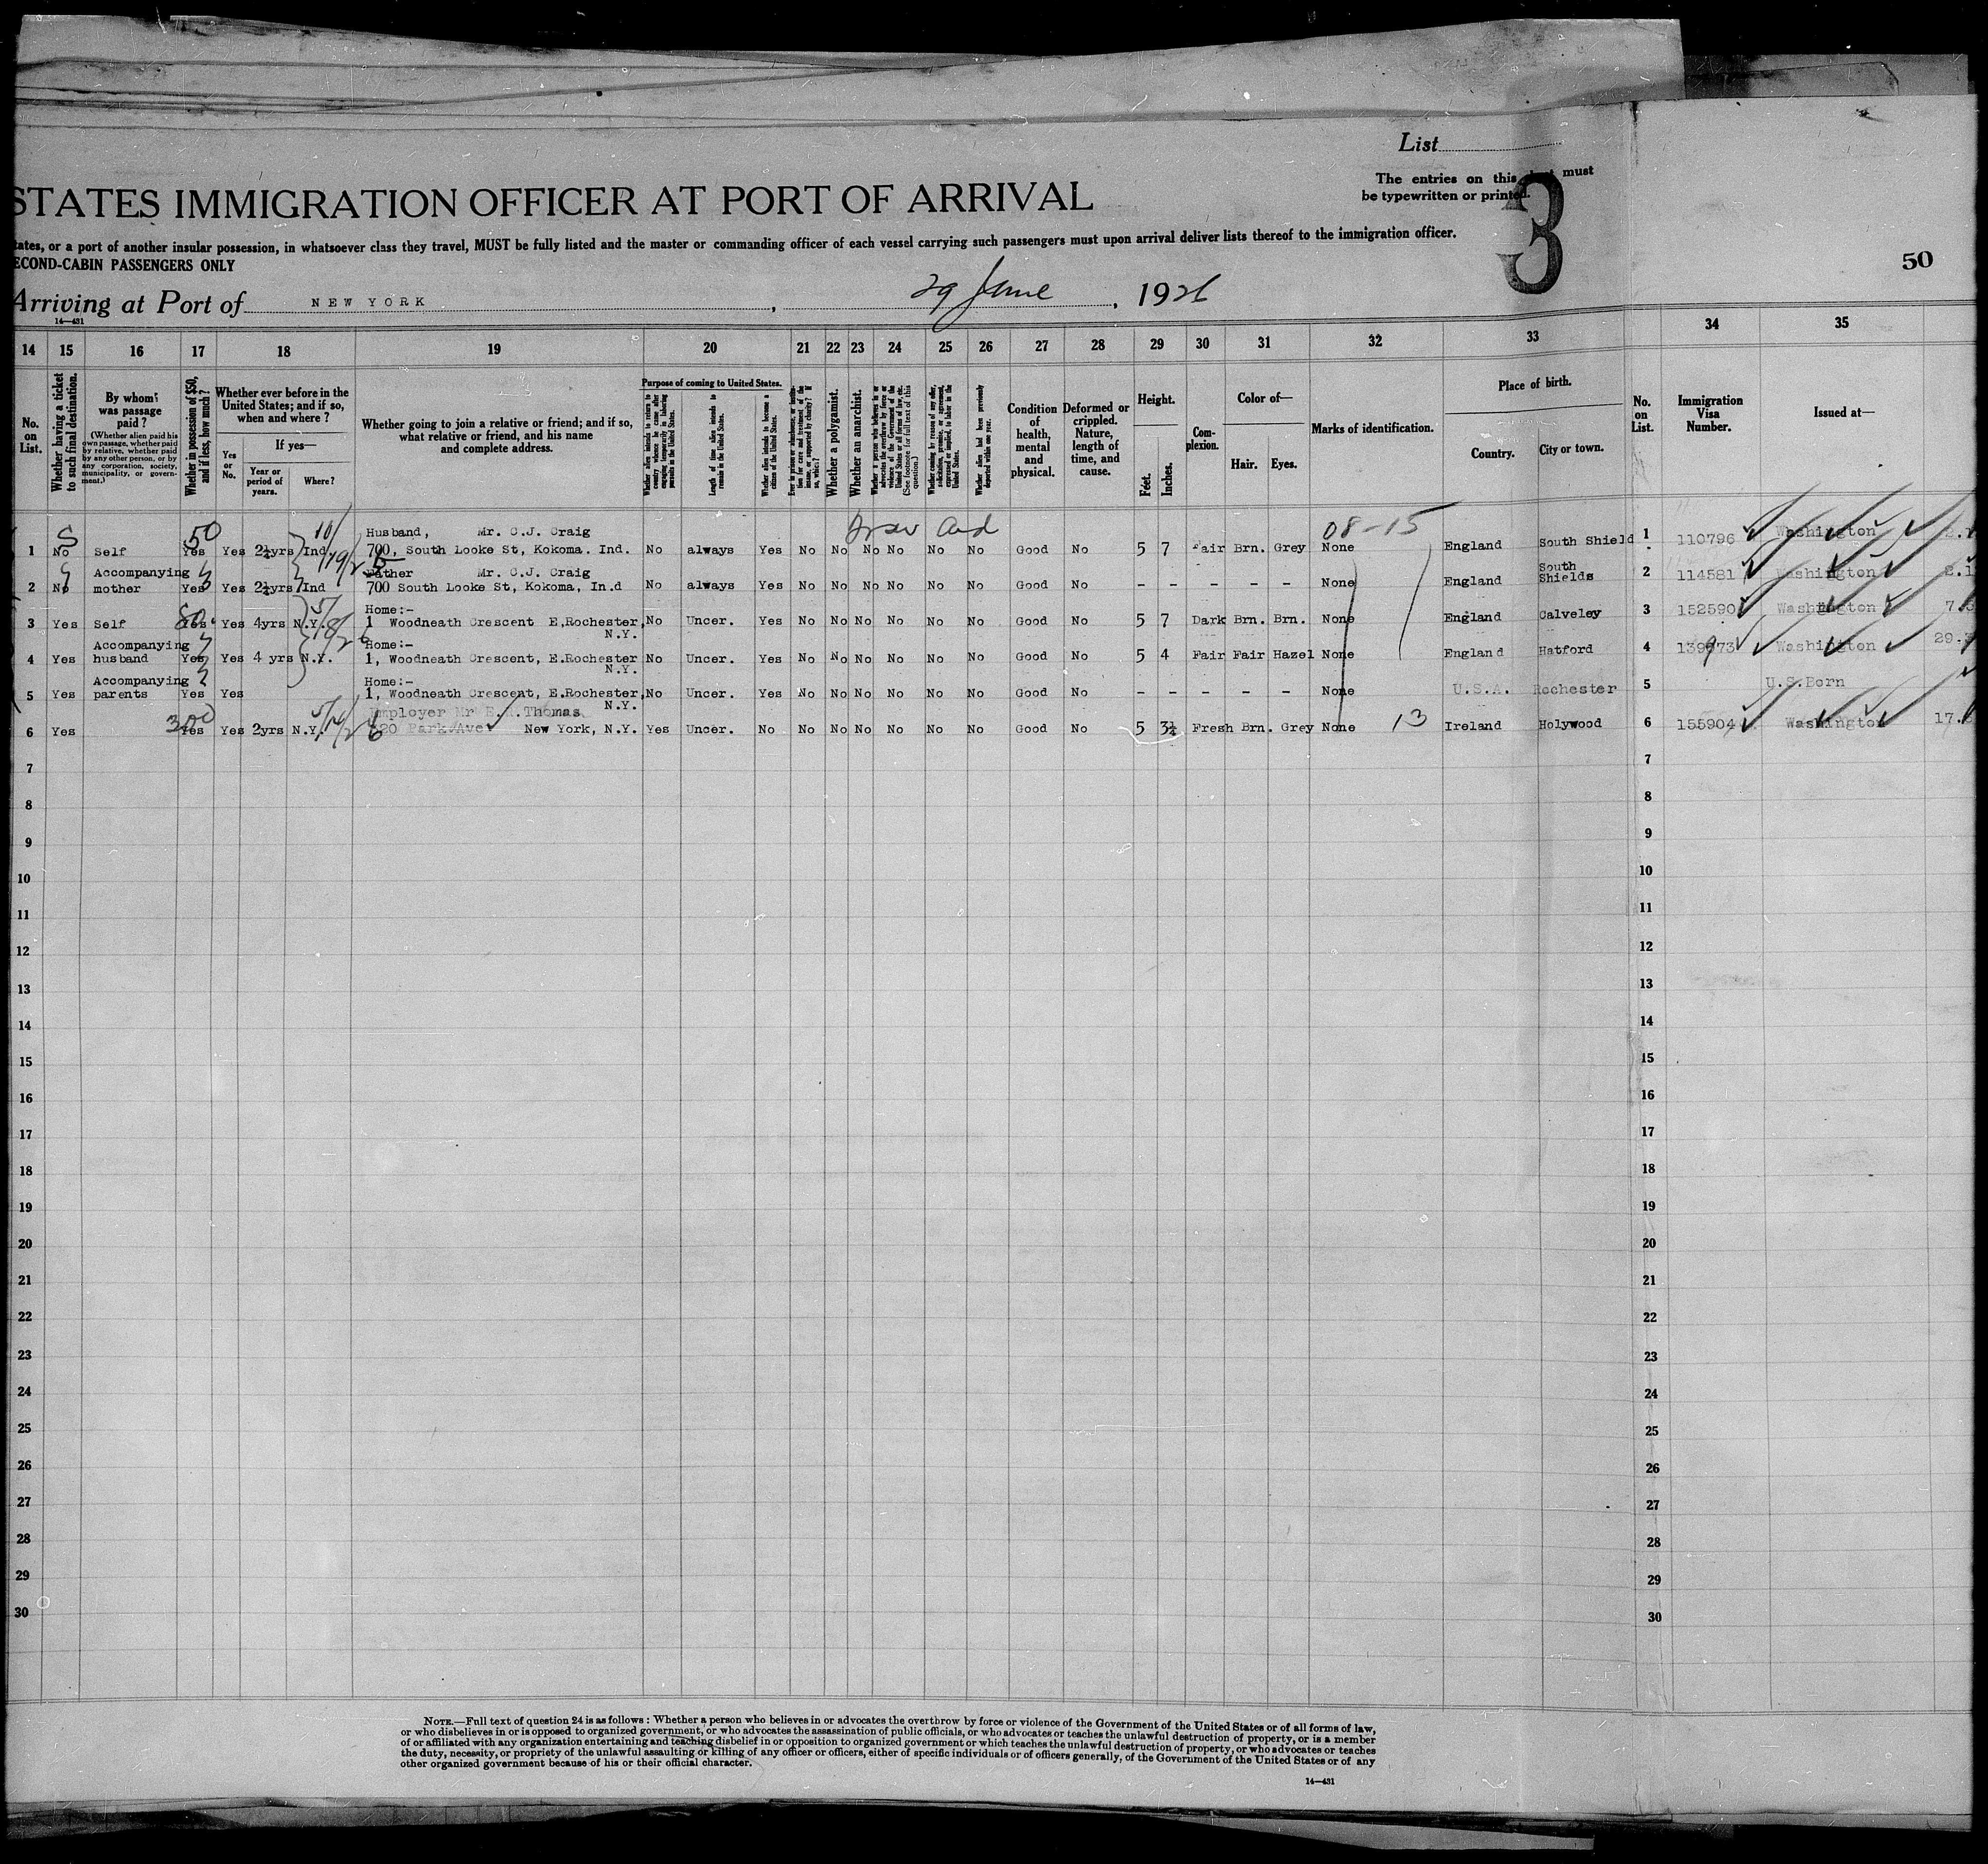 List
The entries on this must
be typewritten or printed.
3
STATES IMMIGRATION OFFICER AT PORT OF ARRIVAL
tates, or a port of another insular possession, in whatsoever class they travel, MUST be fully listed and the master or commanding officer of each vessel carrying such passengers must upon arrival deliver lists thereof to the immigration officer.
ECOND-CABIN PASSENGERS ONLY
50
Arriving at Port of NEW YORK, 29 June, 1926
14—431
14 15 16 17 18 19 20 21 22 23 24 25 26 27 28 29 30 31 32 33 34 35
No. on List.
Whether having a ticket to such final destination.
By whom was passage paid?
(Whether alien paid his own passage, whether paid by relative, whether paid by any other person, or by any corporation, society, municipality, or government.)
Whether in possession of $50, and if less, how much?
Whether ever before in the United States; and if so, when and where?
Yes or No.
If yes—
Year or period of years.
Where?
Whether going to join a relative or friend; and if so, what relative or friend, and his name and complete address.
Purpose of coming to United States.
Whether alien intends to return to country whence he came after engaging temporarily in laboring pursuits in the United States.
Length of time alien intends to remain in the United States.
Whether alien intends to become a citizen of the United States.
Ever in prison or almshouse, or institution for care and treatment of the insane, or supported by charity? If so, which?
Whether a polygamist.
Whether an anarchist.
Whether a person who believes in or advocates the overthrow by force or violence of the Government of the United States or all forms of law, etc. (See footnote for full text of this question.)
Whether coming by reason of any offer, solicitation, promise, or agreement, expressed or implied, to labor in the United States.
Whether alien had been previously deported within one year.
Condition of health, mental and physical.
Deformed or crippled. Nature, length of time, and cause.
Height.
Feet. Inches.
Complexion.
Color of—
Hair. Eyes.
Marks of identification.
Place of birth.
Country. City or town.
No. on List.
Immigration Visa Number.
Issued at—
S 50 10/19/25 08-15
Husband, Mr. C.J. Craig
1 No Self Yes Yes 2½yrs Ind 700, South Looke St, Kokoma. Ind. No always Yes No No No No No No Good No 5 7 Fair Brn. Grey None England South Shield 1 110796 Washington
Accompanying Father Mr. C.J. Craig South
2 No mother Yes Yes 2½yrs Ind 700 South Looke St, Kokoma, In.d No always Yes No No No No No No Good No - - - - - None England Shields 2 114581 Washington
Home:- 5/8/26
3 Yes Self Yes Yes 4yrs N.Y. 1 Woodneath Crescent E,Rochester, No Uncer. Yes No No No No No No Good No 5 7 Dark Brn. Brn. None England Calveley 3 152590 Washington
N.Y.
Accompanying Home:-
4 Yes husband Yes Yes 4 yrs N.Y. 1, Woodneath Crescent, E.Rochester No Uncer. Yes No No No No No No Good No 5 4 Fair Fair Hazel None England Hatford 4 139973 Washington
N.Y.
Accompanying Home:-
5 Yes parents Yes Yes 1, Woodneath Crescent, E.Rochester, No Uncer. Yes No No No No No No Good No - - - - - None U.S.A. Rochester 5 U.S.Born
N.Y.
300 Employer Mr E.R.Thomas 13
6 Yes Yes Yes 2yrs N.Y. 5/14/26 Park Ave New York, N.Y. Yes Uncer. No No No No No No No Good No 5 3½ Fresh Brn. Grey None Ireland Holywood 6 155904 Washington
7 7
8 8
9 9
10 10
11 11
12 12
13 13
14 14
15 15
16 16
17 17
18 18
19 19
20 20
21 21
22 22
23 23
24 24
25 25
26 26
27 27
28 28
29 29
30 30
NOTE.—Full text of question 24 is as follows: Whether a person who believes in or advocates the overthrow by force or violence of the Government of the United States or of all forms of law,
or who disbelieves in or is opposed to organized government, or who advocates the assassination of public officials, or who advocates or teaches the unlawful destruction of property, or is a member
of or affiliated with any organization entertaining and teaching disbelief in or opposition to organized government or which teaches the unlawful destruction of property, or who advocates or teaches
the duty, necessity, or propriety of the unlawful assaulting or killing of any officer or officers, either of specific individuals or of officers generally, of the Government of the United States or of any
other organized government because of his or their official character.
14—431